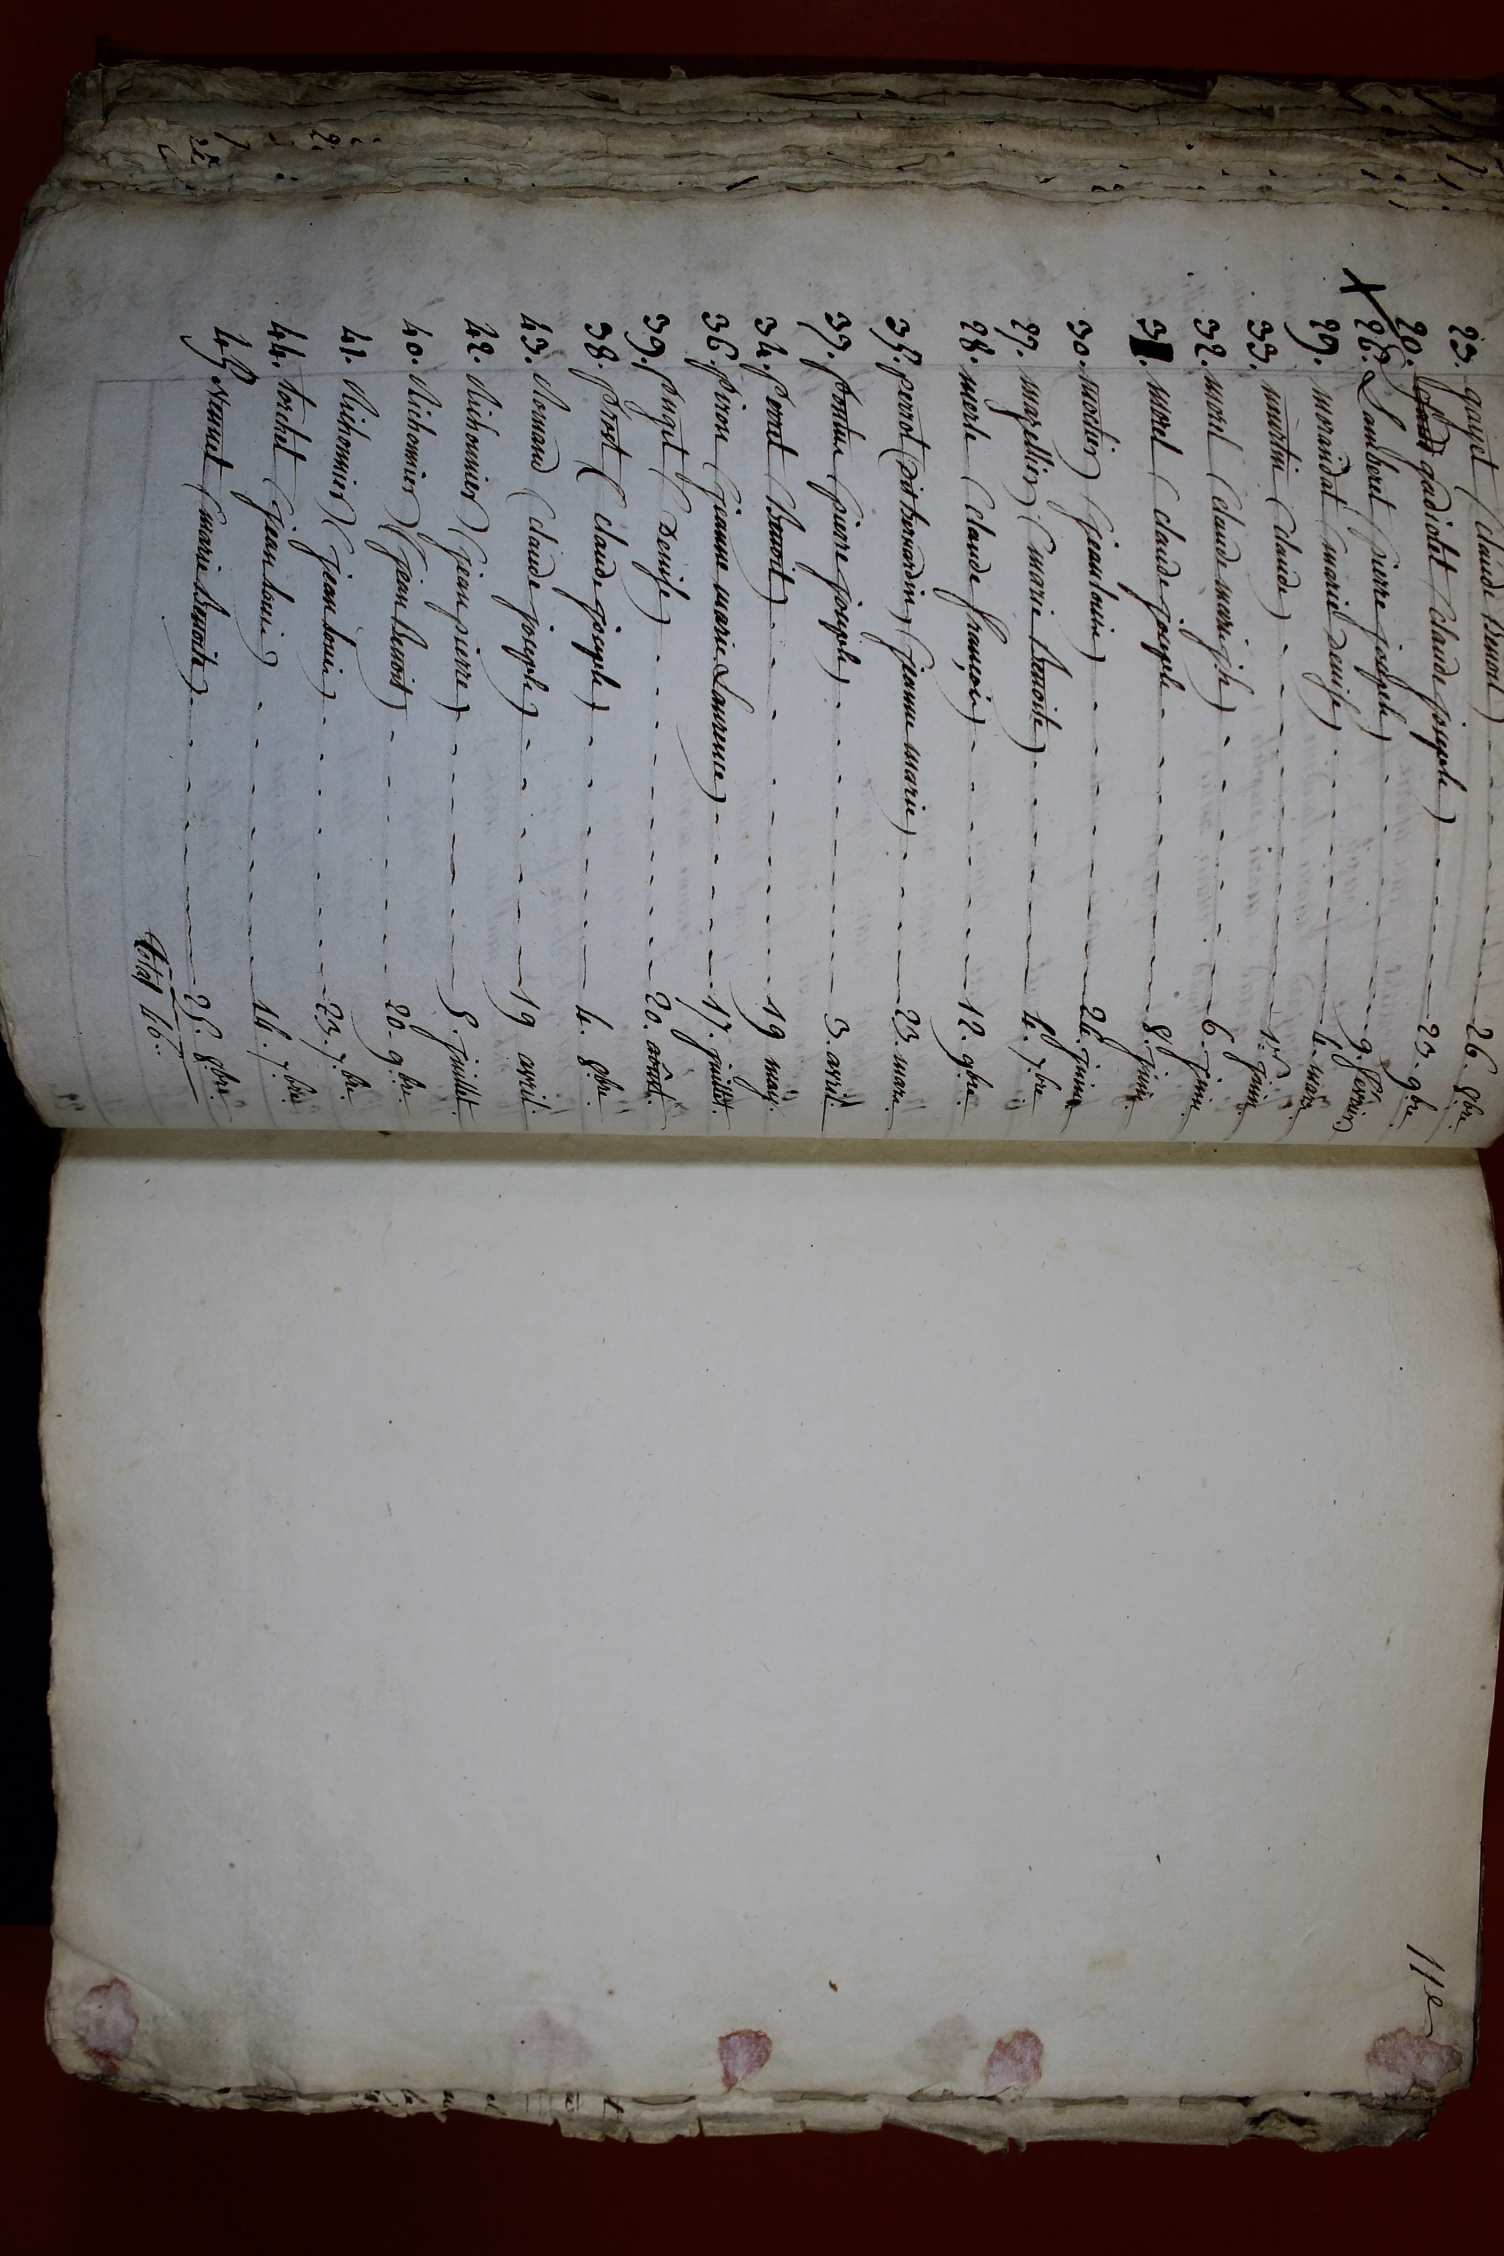 23. gayet (claude Benoit) 26. 8.bre
20. gadiolet (claude joseph) 23. 9.bre
26. Lambert (pierre joseph) 9. fevrier
29. morandat (marie Denise) 4. mars
33. meurtin (claude) 1.er juin
32. morel (claude marie jph) 6. juin
31. morel (claude joseph 8. juin
30. mortier (jean louis) 24. juin
27. mazellier (marie Benoite) 4. 7.bre
28. merle (claude françois) 12. 9bre
35. perrot (dit bernardin) (jeanne marie) 23. mars
37. pontus (pierre joseph) 3. avril
34. perret (Benoit) 19 may
36. piron (jeanne marie Laurence) 17. juillet
39. puget (Denise) 20. août
38. prost (claude joseph) 4. 8bre
43. (claude joseph) 19 avril
42. (jean pierre) 5. juillet
40. (jean Benoit) 20. 9.bre
41. (jean louis) 23. 7.bre
44. torchet (jean louis) 14. 7.bre
45. (marie Benoite) 25. 8bre
total 46
11e